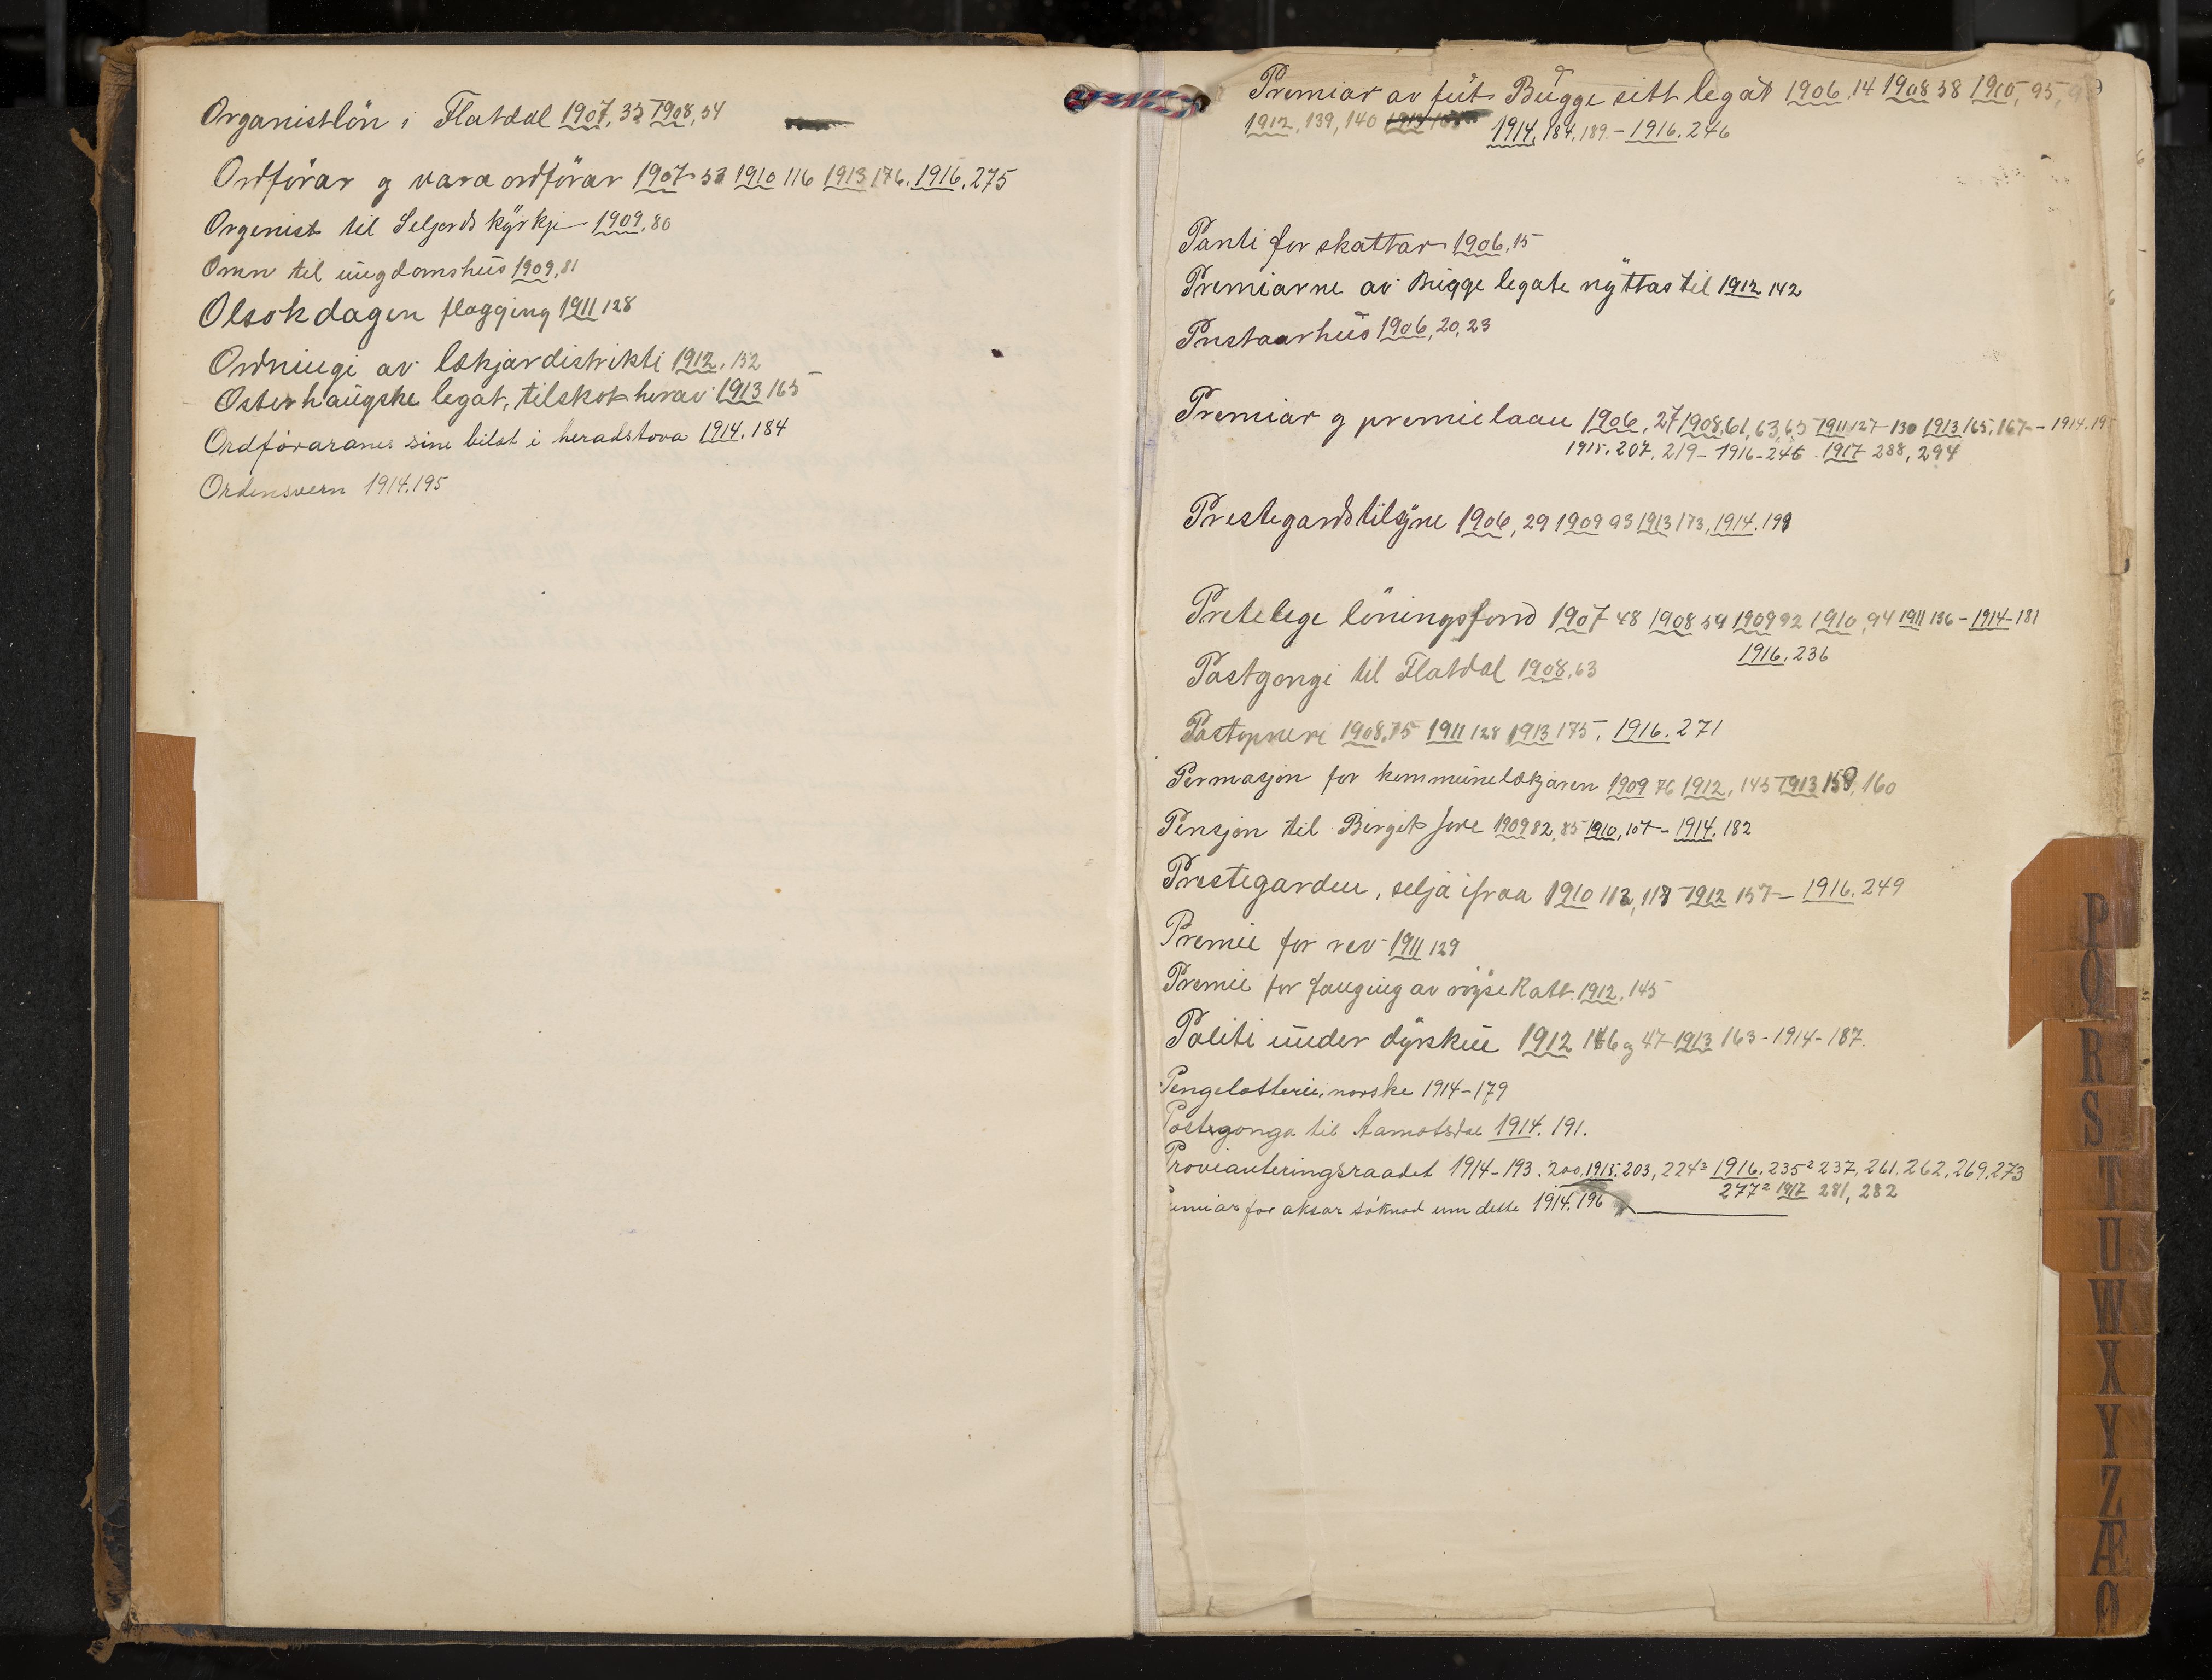 Organistlön i Flatdal 1907, 35 1908, 54
Ordförar g vara ordförar 1907 53 1910 116 1913 176. 1916. 275
Orgenist til Seljords kyrkje 1909, 80
Omn til ungdomshus 1909, 81
Olsokdagen flagging 1911 128
Ordningi av lækjardistrikti 1912. 152
Osterhaugske legat, tilskot herav 1913 165
Ordföraranes sine bilæt i heradstova 1914. 184
Ordensvern 1914. 195
Premiar av fut Bugge sitt legat 1906, 14 1908 58 1910, 95,
1912, 139, 140 1914, 184, 189. - 1916. 246
Panti for skattar 1906, 15
Premiarne av Bugge legate nyttas til 1912 142
Prestaarhus 1906, 20, 23
Premiar g premielaau 1906, 27 1908, 61, 63, 65 1911 127 - 130 1913 165, 167 - 1914. 195
1915. 207, 219 - 1916 - 246 . 1917 288, 294
Prestegardstilsyne 1906, 29 1909 93 1913 173, 1914. 199
Pretelege löningsfond 1907 48 1908 59 1909 92 1910, 94 1911 136 - 1914 - 181
1916. 236
Postgongi til Flatdal 1908, 63
Postopneri 1908, 75 1911 128 1913 175, 1916. 271
Permasjon for kommunelækjaren 1909 76 1912, 145 1913 158, 160
Pensjon til Birgit 1909 82, 85 1910, 107 - 1914. 182
Prestegarden, selja ifraa 1910 112, 118 1912 157 - 1916. 249
Premie for rev 1911 129
Premie for fanging av röysekatt 1912, 145
Politi under dyrskue 1912 146 g 47 1913 163 - 1914 - 187.
Pengelotterie, norske 1914 - 179
Postgonga til Aamotsdal 1914. 191.
Provianteringsraadet 1914 - 193. 200, 1915. 203, 224² 1916. 235² 237, 261. 262, 269, 273
277² 1917 281, 282
emiar for aksar söknad um desse 1914. 196
P
Q
R
S
T
U
W
X
Y
Z
Æ
Ø